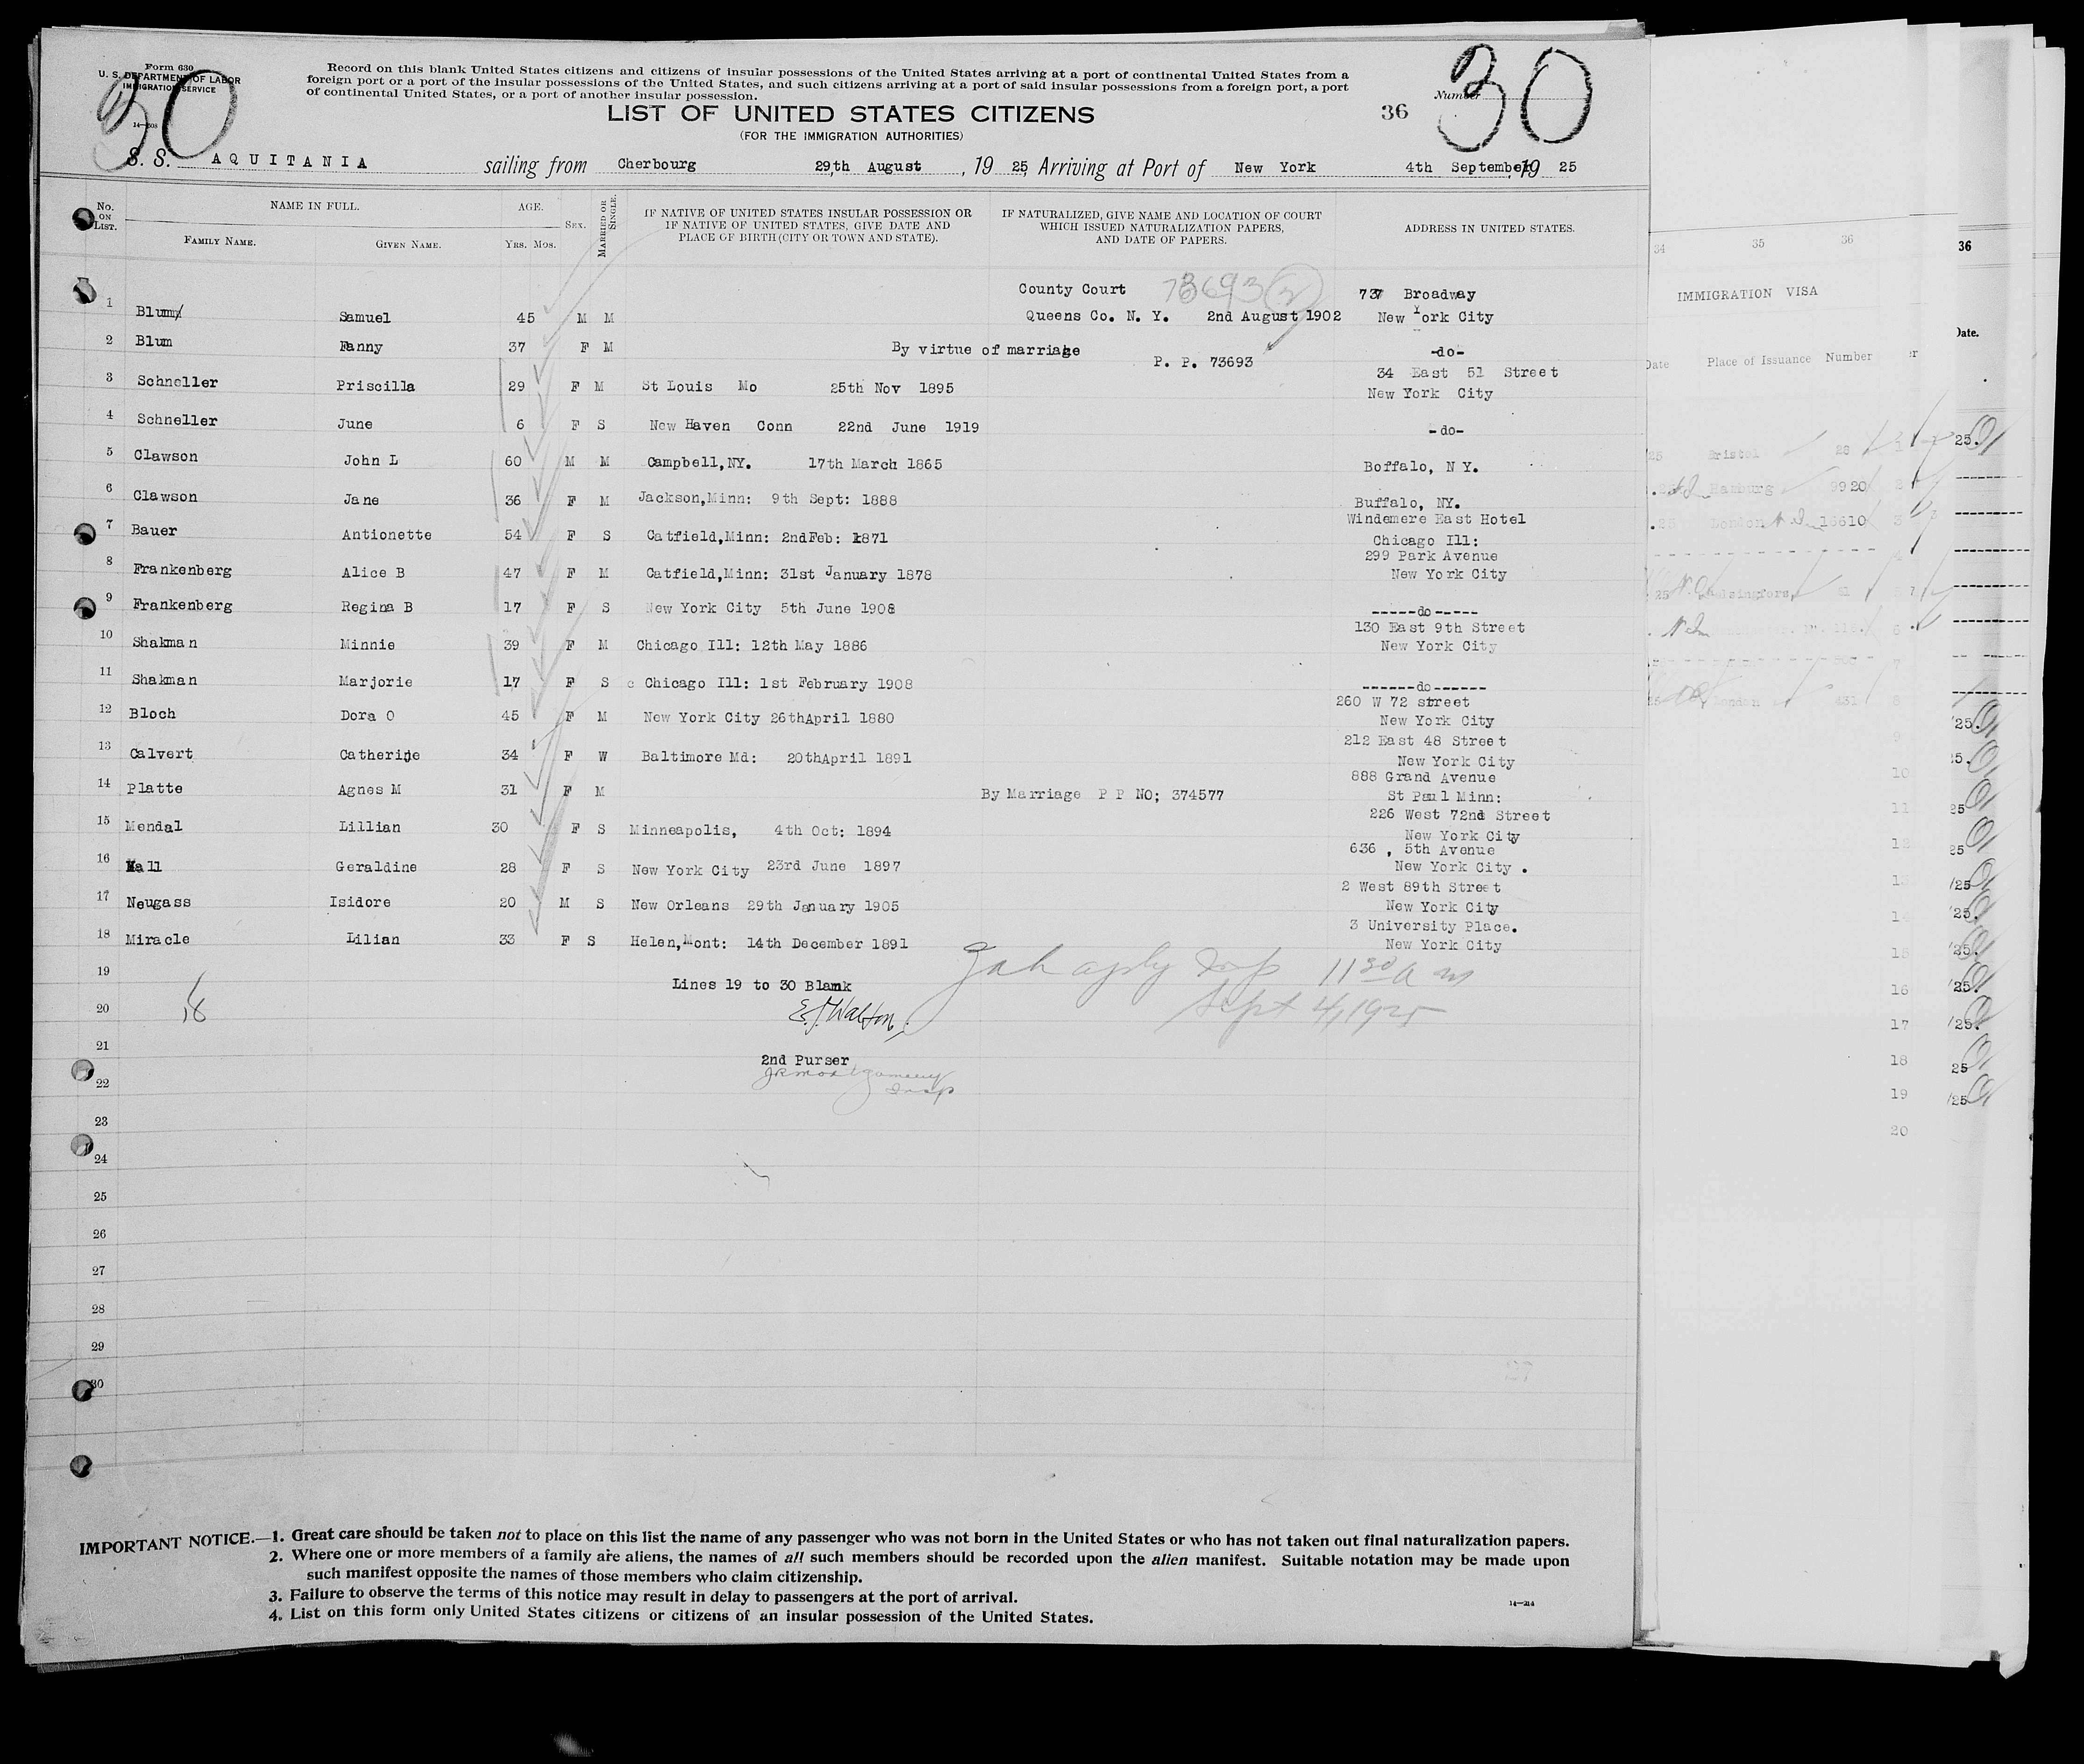 Form 630
U. S. DEPARTMENT OF LABOR
IMMIGRATION SERVICE
30
Record on this blank United States citizens and citizens of insular possessions of the United States arriving at a port of continental United States from a
foreign port or a port of the insular possessions of the United States, and such citizens arriving at a port of said insular possessions from a foreign port, a port
of continental United States, or a port of another insular possession.
LIST OF UNITED STATES CITIZENS
(FOR THE IMMIGRATION AUTHORITIES)
36
Number
30
S. S. AQUITANIA sailing from Cherbourg 29,th August , 19 25, Arriving at Port of New York 4th September, 19 25
No. ON LIST.
NAME IN FULL.
FAMILY NAME. GIVEN NAME.
AGE.
YRS. MOS.
SEX.
MARRIED OR SINGLE.
IF NATIVE OF UNITED STATES INSULAR POSSESSION OR
IF NATIVE OF UNITED STATES, GIVE DATE AND
PLACE OF BIRTH (CITY OR TOWN AND STATE).
IF NATURALIZED, GIVE NAME AND LOCATION OF COURT
WHICH ISSUED NATURALIZATION PAPERS,
AND DATE OF PAPERS.
ADDRESS IN UNITED STATES.
County Court 73693 (2) 737 Broadway
1 Blum Samuel 45 M M Queens Co. N. Y. 2nd August 1902 New York City
2 Blum Fanny 37 F M By virtue of marriage P. P. 73693 -do-
34 East 51 Street
3 Schneller Priscilla 29 F M St Louis Mo 25th Nov 1895 New York City
4 Schneller June 6 F S New Haven Conn 22nd June 1919 -do-
5 Clawson John L 60 M M Campbell,NY. 17th March 1865 Boffalo, N Y.
6 Clawson Jane 36 F M Jackson,Minn: 9th Sept: 1888 Buffalo, NY.
Windemere East Hotel
7 Bauer Antionette 54 F S Catfield,Minn: 2ndFeb: 1871 Chicago Ill:
299 Park Avenue
8 Frankenberg Alice B 47 F M Catfield,Minn: 31st January 1878 New York City
9 Frankenberg Regina B 17 F S New York City 5th June 1908 -----do-----
130 East 9th Street
10 Shakman Minnie 39 F M Chicago Ill: 12th May 1886 New York City
11 Shakman Marjorie 17 F S c Chicago Ill: 1st February 1908 ------do------
260 W 72 street
12 Bloch Dora O 45 F M New York City 26thApril 1880 New York City
212 East 48 Street
13 Calvert Catherine 34 F W Baltimore Md: 20thApril 1891 New York City
888 Grand Avenue
14 Platte Agnes M 31 F M By Marriage P P NO; 374577 St Paul Minn:
226 West 72nd Street
15 Mendal Lillian 30 F S Minneapolis, 4th Oct: 1894 New York City
636 , 5th Avenue
16 Hall Geraldine 28 F S New York City 23rd June 1897 New York City .
2 West 89th Street
17 Neugass Isidore 20 M S New Orleans 29th January 1905 New York City
3 University Place.
18 Miracle Lilian 33 F S Helen,Mont: 14th December 1891 New York City
19 Lines 19 to 30 Blank 11 30 a m
20 18 E. J. Walton Sept 4, 1925
21 2nd Purser
22 J R Montgomery
Insp
23
24
25
26
27
28
29
30
IMPORTANT NOTICE.—1. Great care should be taken not to place on this list the name of any passenger who was not born in the United States or who has not taken out final naturalization papers.
2. Where one or more members of a family are aliens, the names of all such members should be recorded upon the alien manifest. Suitable notation may be made upon
such manifest opposite the names of those members who claim citizenship.
3. Failure to observe the terms of this notice may result in delay to passengers at the port of arrival.
4. List on this form only United States citizens or citizens of an insular possession of the United States.
14—214
34 35 36
36
IMMIGRATION VISA
Date.
Date Place of Issuance Number
25 Bristol 28
Hamburg 9920
.25 London 16610
25 Helsingfors, 21
25 London 431
10
11
12
16
17
18
19
20